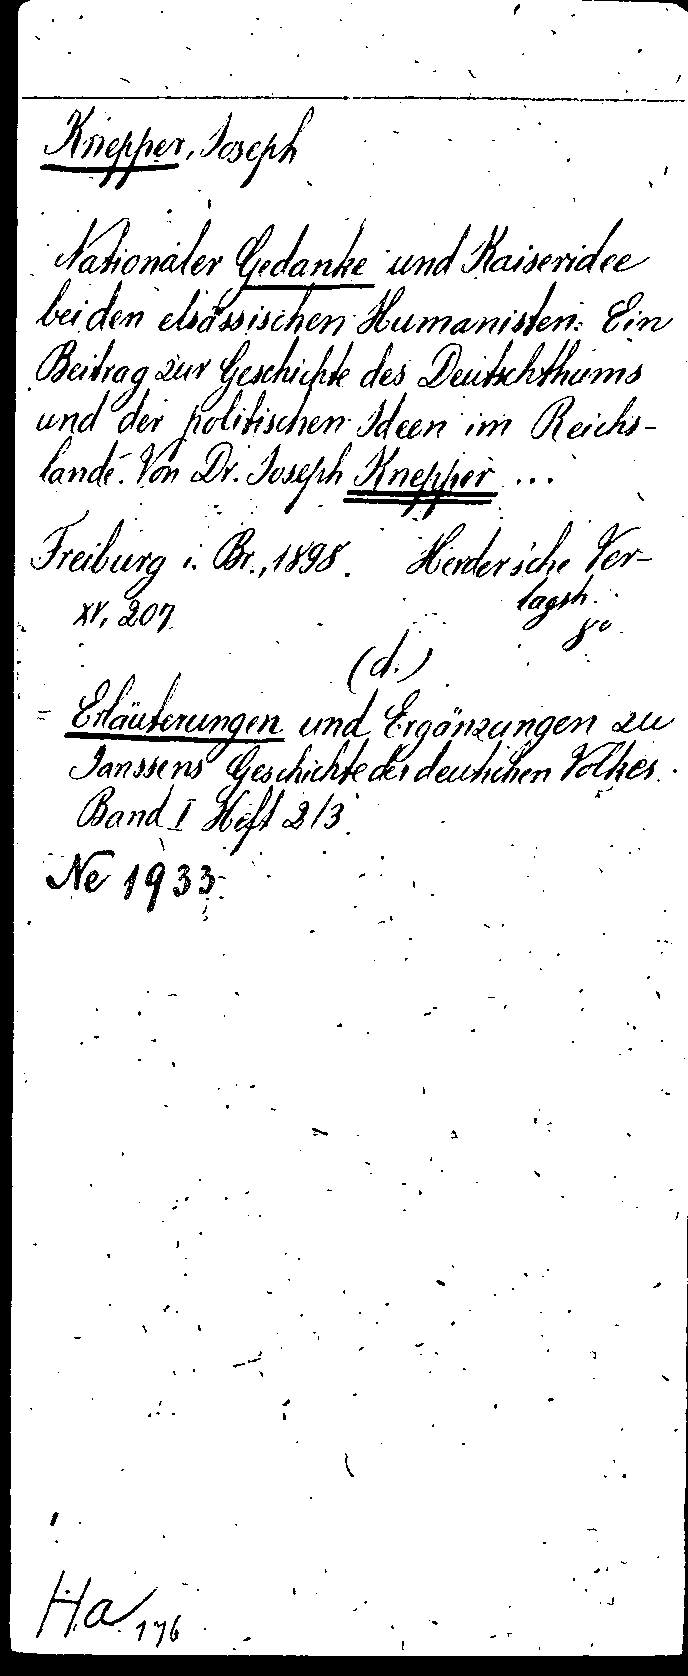 Knepper, Joseph
Nationaler Gedanke und Kaiseridee
bei den elsässischen Humanisten. Ein
Beitrag zur Geschichte des Deutschthums
und der politischen Ideen im Reichs-
lande. Von Dr. Joseph Knepper ...
Freiburg i. Br., 1898. Herder'sche Ver-
lagsh.
XV, 207 8°
(d.)
= Erläuterungen und Ergänzungen zu
Janssens Geschichte des deutschen Volkes.
Band I Heft 2/3.
Ne 1933
Ha 176